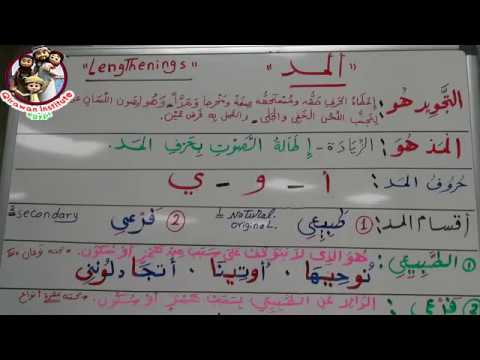 Qirawan institute
"المد" "Lengthenings"
التجويد هو: إعطاء الحرف حقه ومستحقه صفة ومخرجا وهو صون اللسان عن
تجنب اللحن الخفي والجلي والعمل به فرض عين.
المد هو: الزيادة - إطالة الصوت بحرف المد.
حروف المد: ا - و - ي
أقسام المد: ① طبيعي Natural. original. ② فرعي secondary
① الطبيعي: هو الذي لا يتوقف على سبب همز أو سكون.
نُوحِيهَا . أُوتِينَا . أَتُجَادِلُونَنِي
② فرعي: الزائد عن الطبيعي بسبب همز أو سكون.